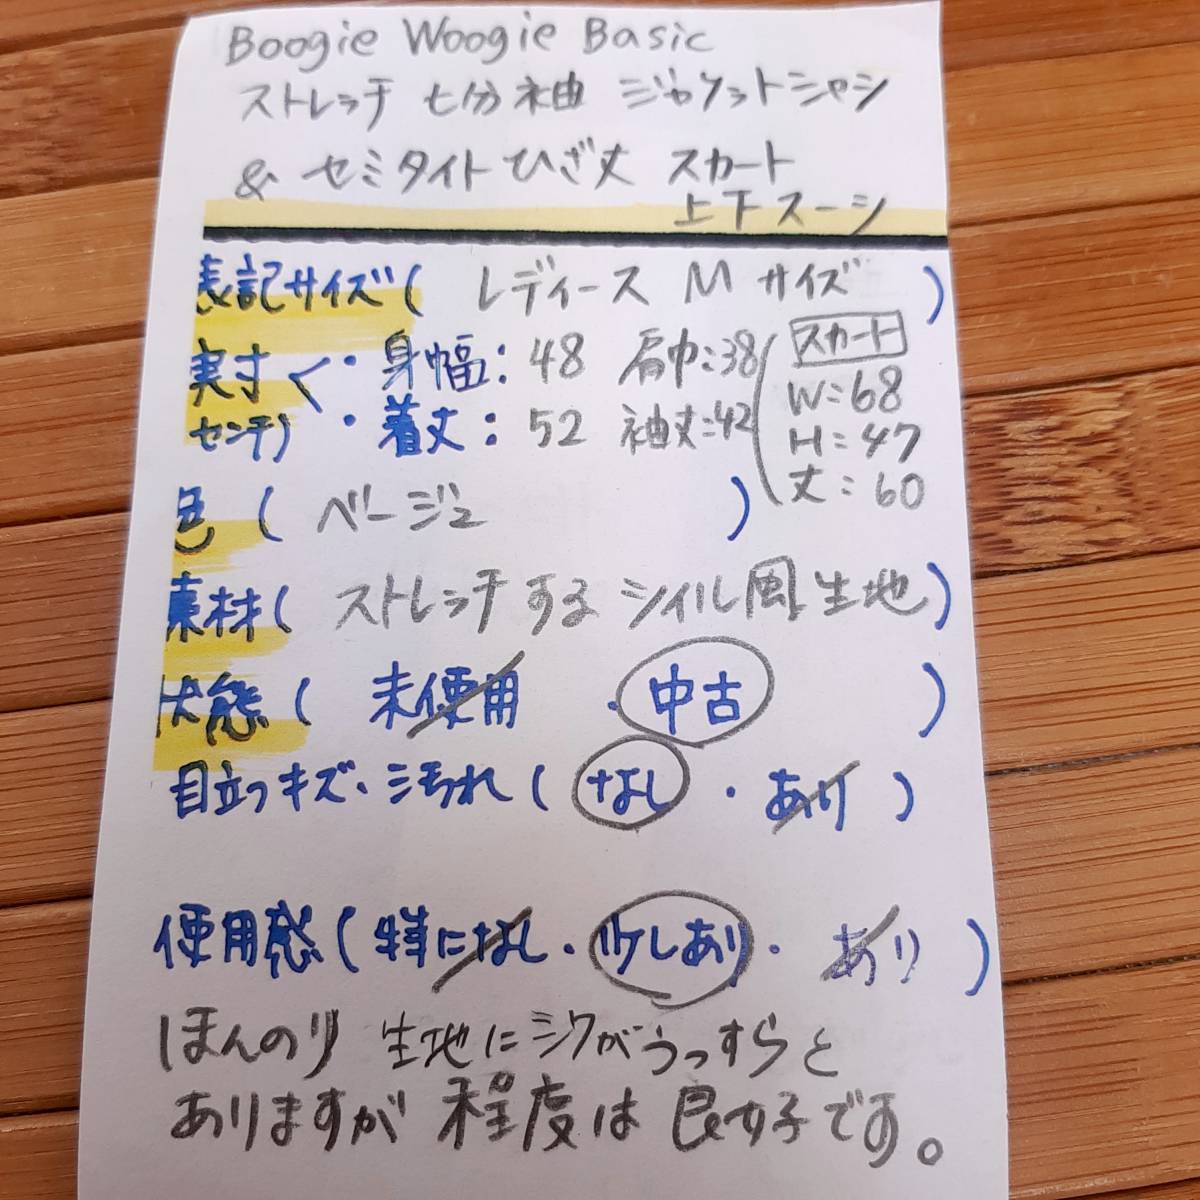 Boogie Woogie Basic
ストレッチ 七分袖 ジャケットシャシ
& セミタイトひざ丈 スカート
上下スーシ
表記サイズ( レディース M サイズ )
実寸く・身幅:48 肩巾:38
センチ)・着丈:52 袖丈:42
スカート
W=68
H=47
丈:60
色( ベージュ )
素材( ストレッチする シイル風生地)
状態( 未使用 ・ 中古 )
目立つキズ・汚れ( なし ・ あり )
使用感( 特になし・少しあり・ あり )
ほんのり 生地にシワがうっすらと
ありますが 程度は良好です。